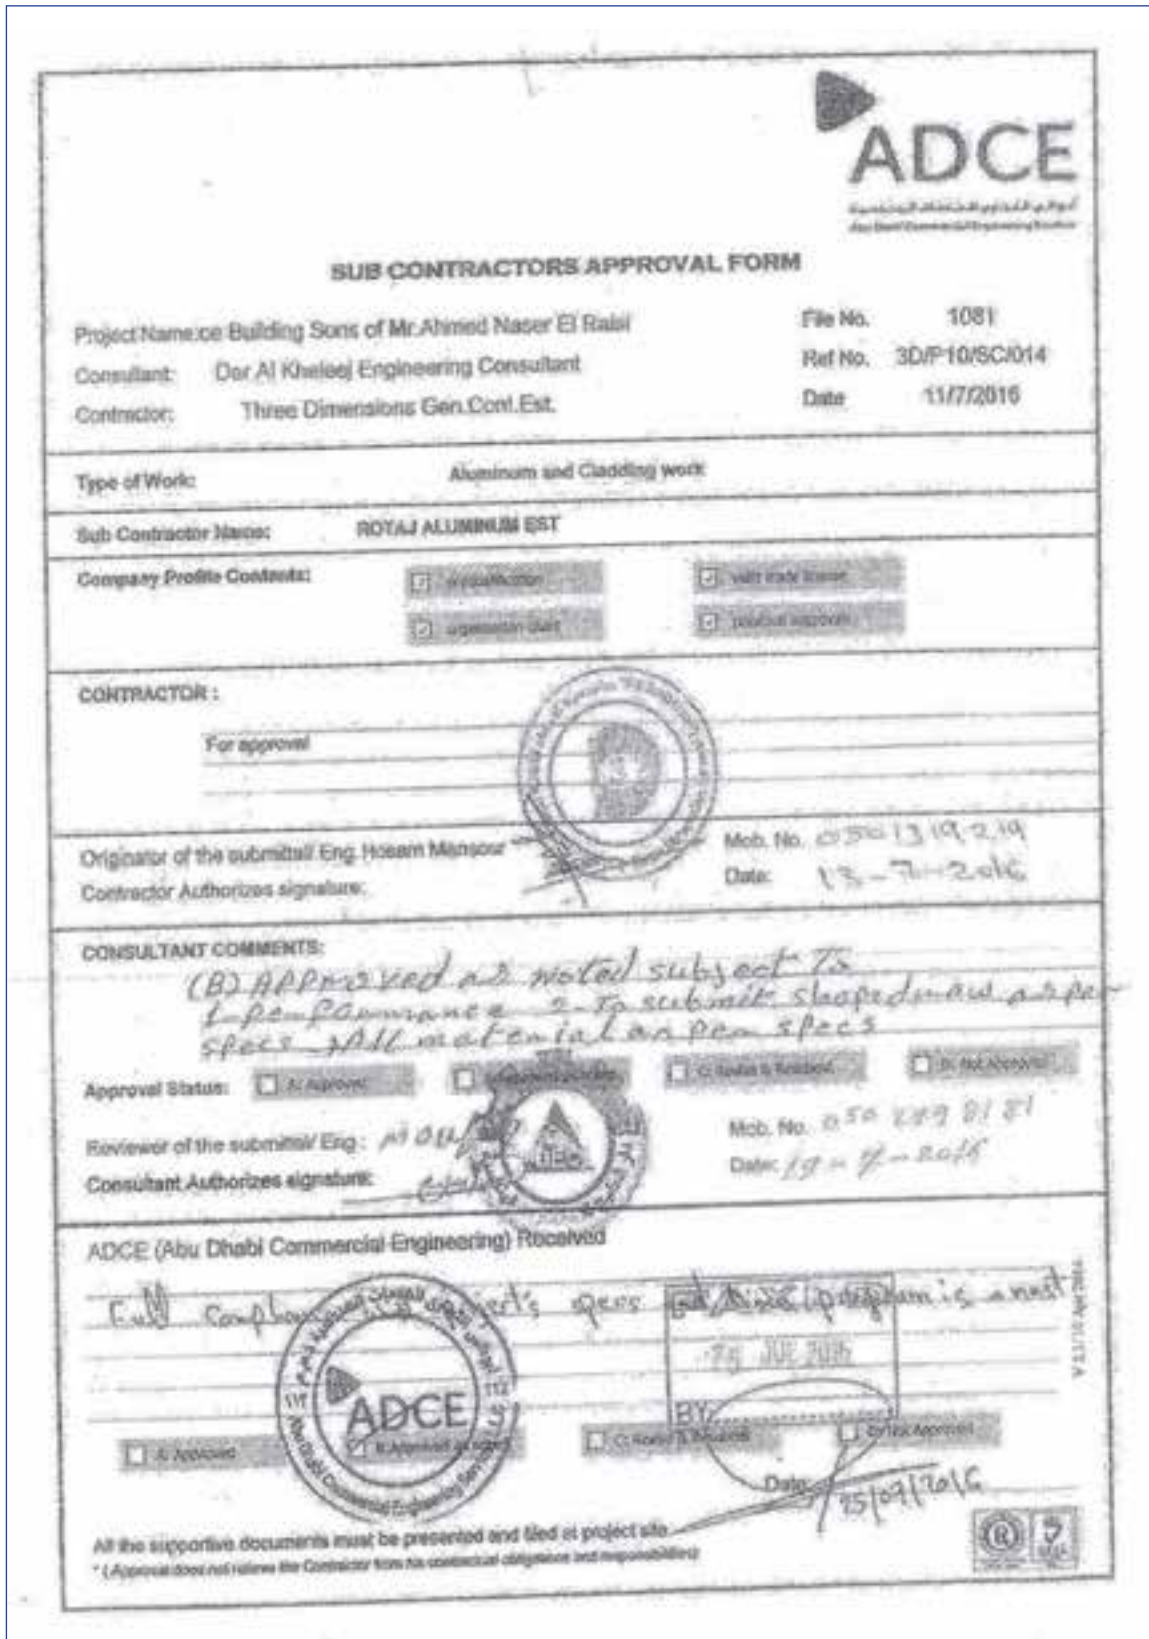 ADCE
Abu Dhabi Commercial Engineering Services
SUB CONTRACTORS APPROVAL FORM
Project Name: ce Building Sons of Mr.Ahmed Naser El Raisi
File No. 1081
Consultant: Dar Al Khaleej Engineering Consultant
Ref No. 3D/P10/SC/014
Contractor: Three Dimensions Gen.Cont.Est.
Date 11/7/2016
Type of Work: Aluminum and Cladding work
Sub Contractor Name: ROTAJ ALUMINUM EST
Company Profile Contents:
prequalification
valid trade license
organisation chart
previous approvals
CONTRACTOR :
For approval
Originator of the submittal/ Eng. Hosam Mansour
Mob. No. 050 1319219
Contractor Authorizes signature:
Date: 13-7-2016
CONSULTANT COMMENTS:
(B) Approved as noted subject To
1-performance 2-To submit shopedraw as per
specs All material as per specs
Approval Status: A: Approved
C: Revise & Resubmit
D: Not Approved
Reviewer of the submittal/ Eng :
Mob. No. 050
Consultant Authorizes signature:
Date: 19-7-2016
ADCE (Abu Dhabi Commercial Engineering) Received
Full specs program is a must
JUL 2016
ADCE
BY:
A: Approved
B: Approved as noted
C: Revise & Resubmit
D: Not Approved
Date: 25/07/2016
All the supportive documents must be presented and filed at project site
* ( Approval does not relieve the Contractor from his contractual obligations and responsibilities)